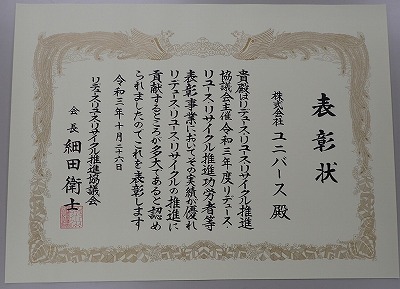 表彰状
株式会社 ユニバース 殿
貴殿はリデュース・リユース・リサイクル推進
協議会主催令和三年度リデュース・
リユース・リサイクル推進功労者等
表彰事業においてその実績が優れ
リデュース・リユース・リサイクルの推進に
貢献するところが多大であると認め
られましたのでこれを表彰します
令和三年十月二十六日
リデュース・リユース・リサイクル推進協議会
会長 細田衛士